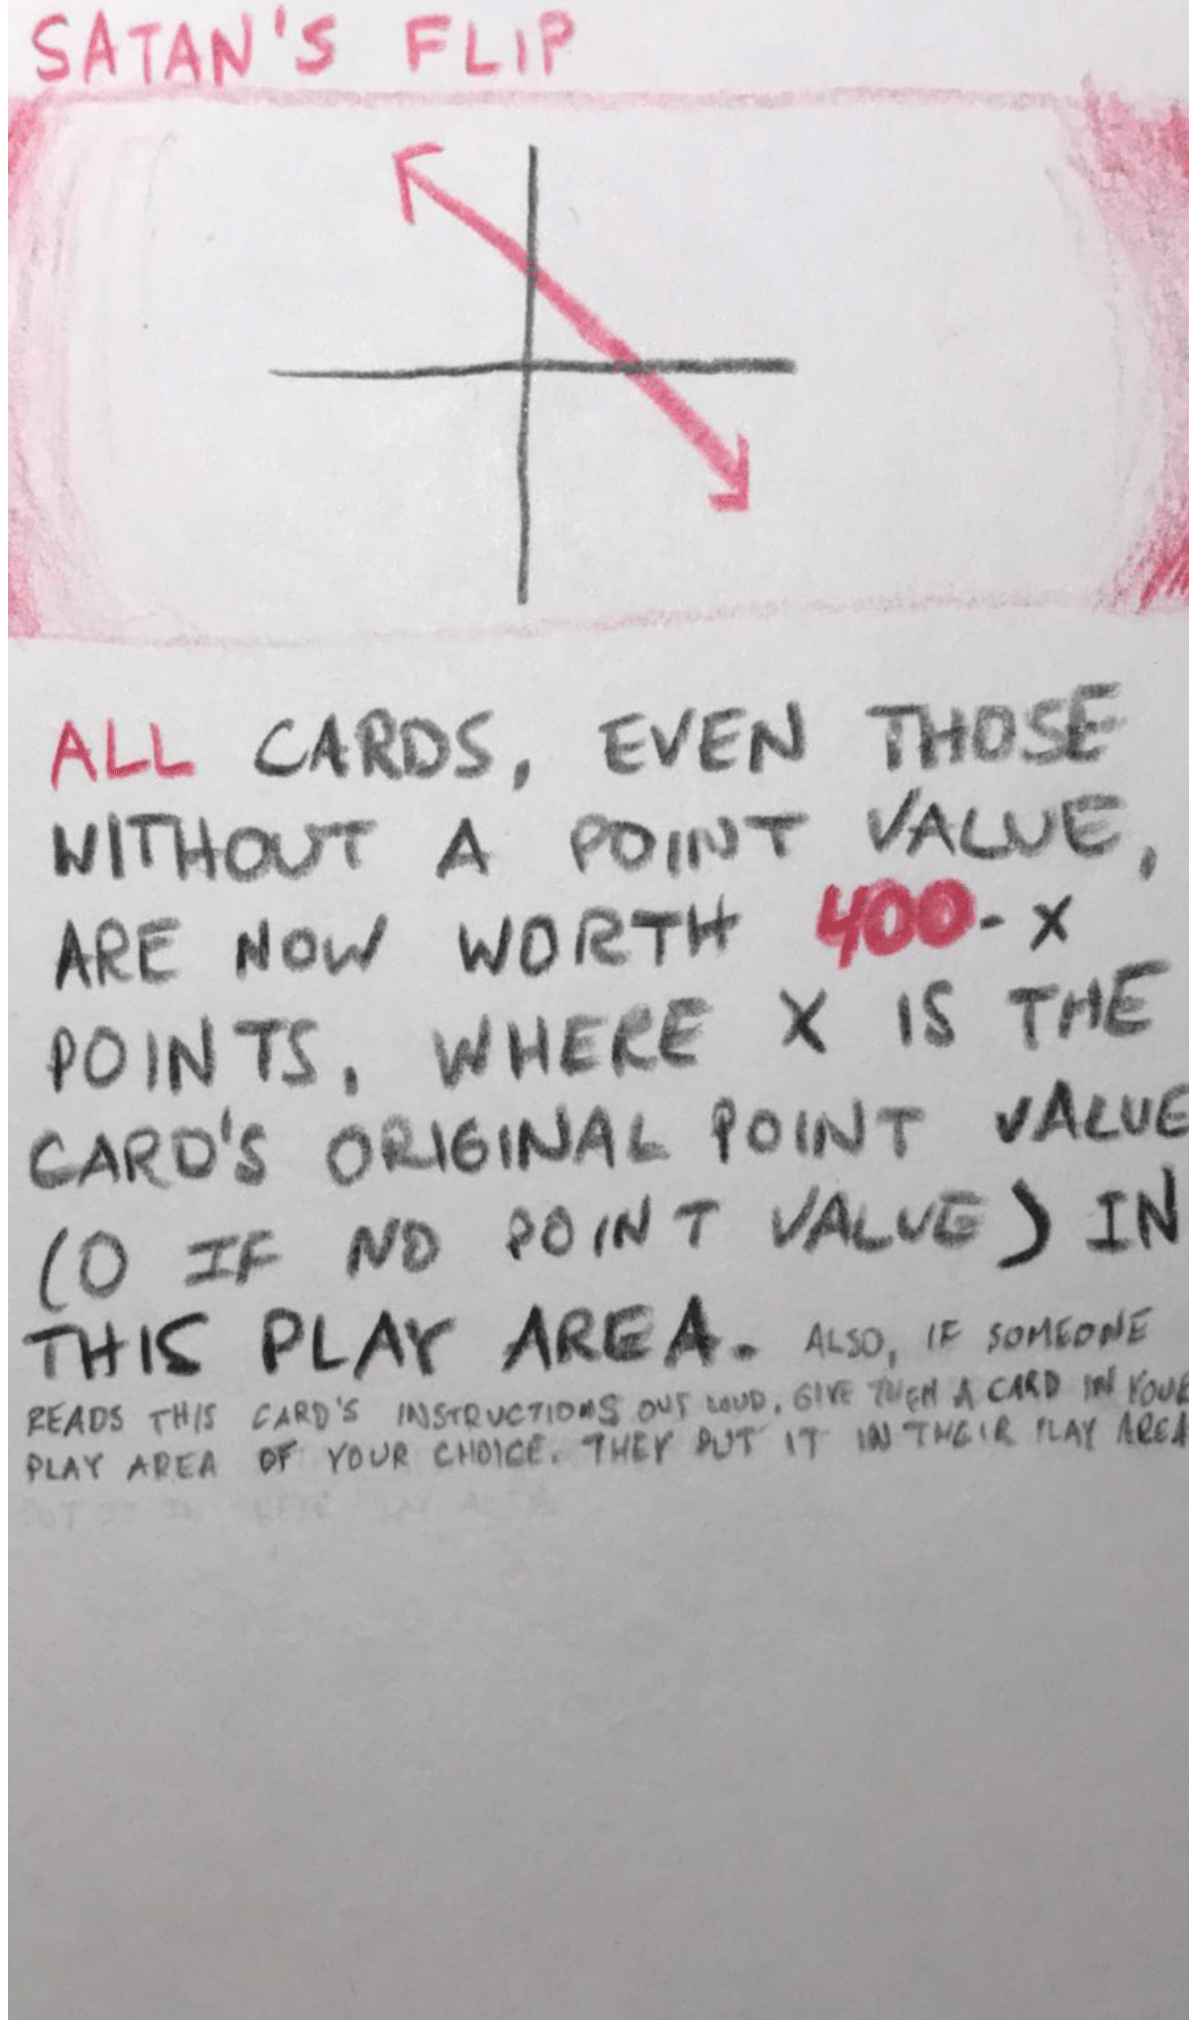 SATAN'S FLIP
ALL CARDS, EVEN THOSE
WITHOUT A POINT VALUE,
ARE NOW WORTH 400-X
POINTS, WHERE X IS THE
CARD'S ORIGINAL POINT VALUE
(0 IF NO POINT VALUE) IN
THIS PLAY AREA. ALSO, IF SOMEONE
READS THIS CARD'S INSTRUCTIONS OUT LOUD, GIVE THEM A CARD IN YOUR
PLAY AREA OF YOUR CHOICE. THEY PUT IT IN THEIR PLAY AREA